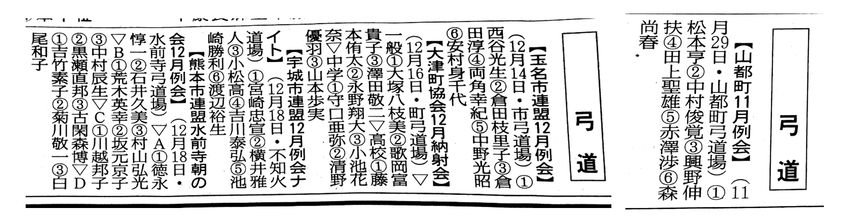 弓道
【山都町11月例会】(11
月29日・山都町弓道場)①
松本亨②中村俊覚③興野伸
扶④田上聖雄⑤赤澤渉⑥森
尚春
弓道
【玉名市連盟12月例会】
(12月14日・市弓道場)①
西谷光生②倉田枝里子③倉
田淳④両角幸紀⑤中野光昭
⑥安村身千代
【大津町協会12月納射会】
(12月16日・町弓道場)▽
一般①大塚八枝美②歌岡富
貴子③澤田敬二▽高校①藤
本侑太②永野翔大③小池花
奈▽中学①守口亜弥②清野
優羽③山本歩実
【宇城市連盟12月例会ナ
イト】(12月18日・不知火
道場)①宮崎忠宣②横井雅
人③小松高④吉川泰弘⑤池
崎勝利⑥渡辺裕生
【熊本市連盟水前寺朝の
会12月例会】(12月18日・
水前寺弓道場)▽A①徳永
惇一②石井久美③村山弘光
▽B①荒木英幸②坂元京子
③中村辰生▽C①川越邦子
②黒瀬直邦③古閑森博▽D
①吉竹素子②菊川敬一③白
尾和子